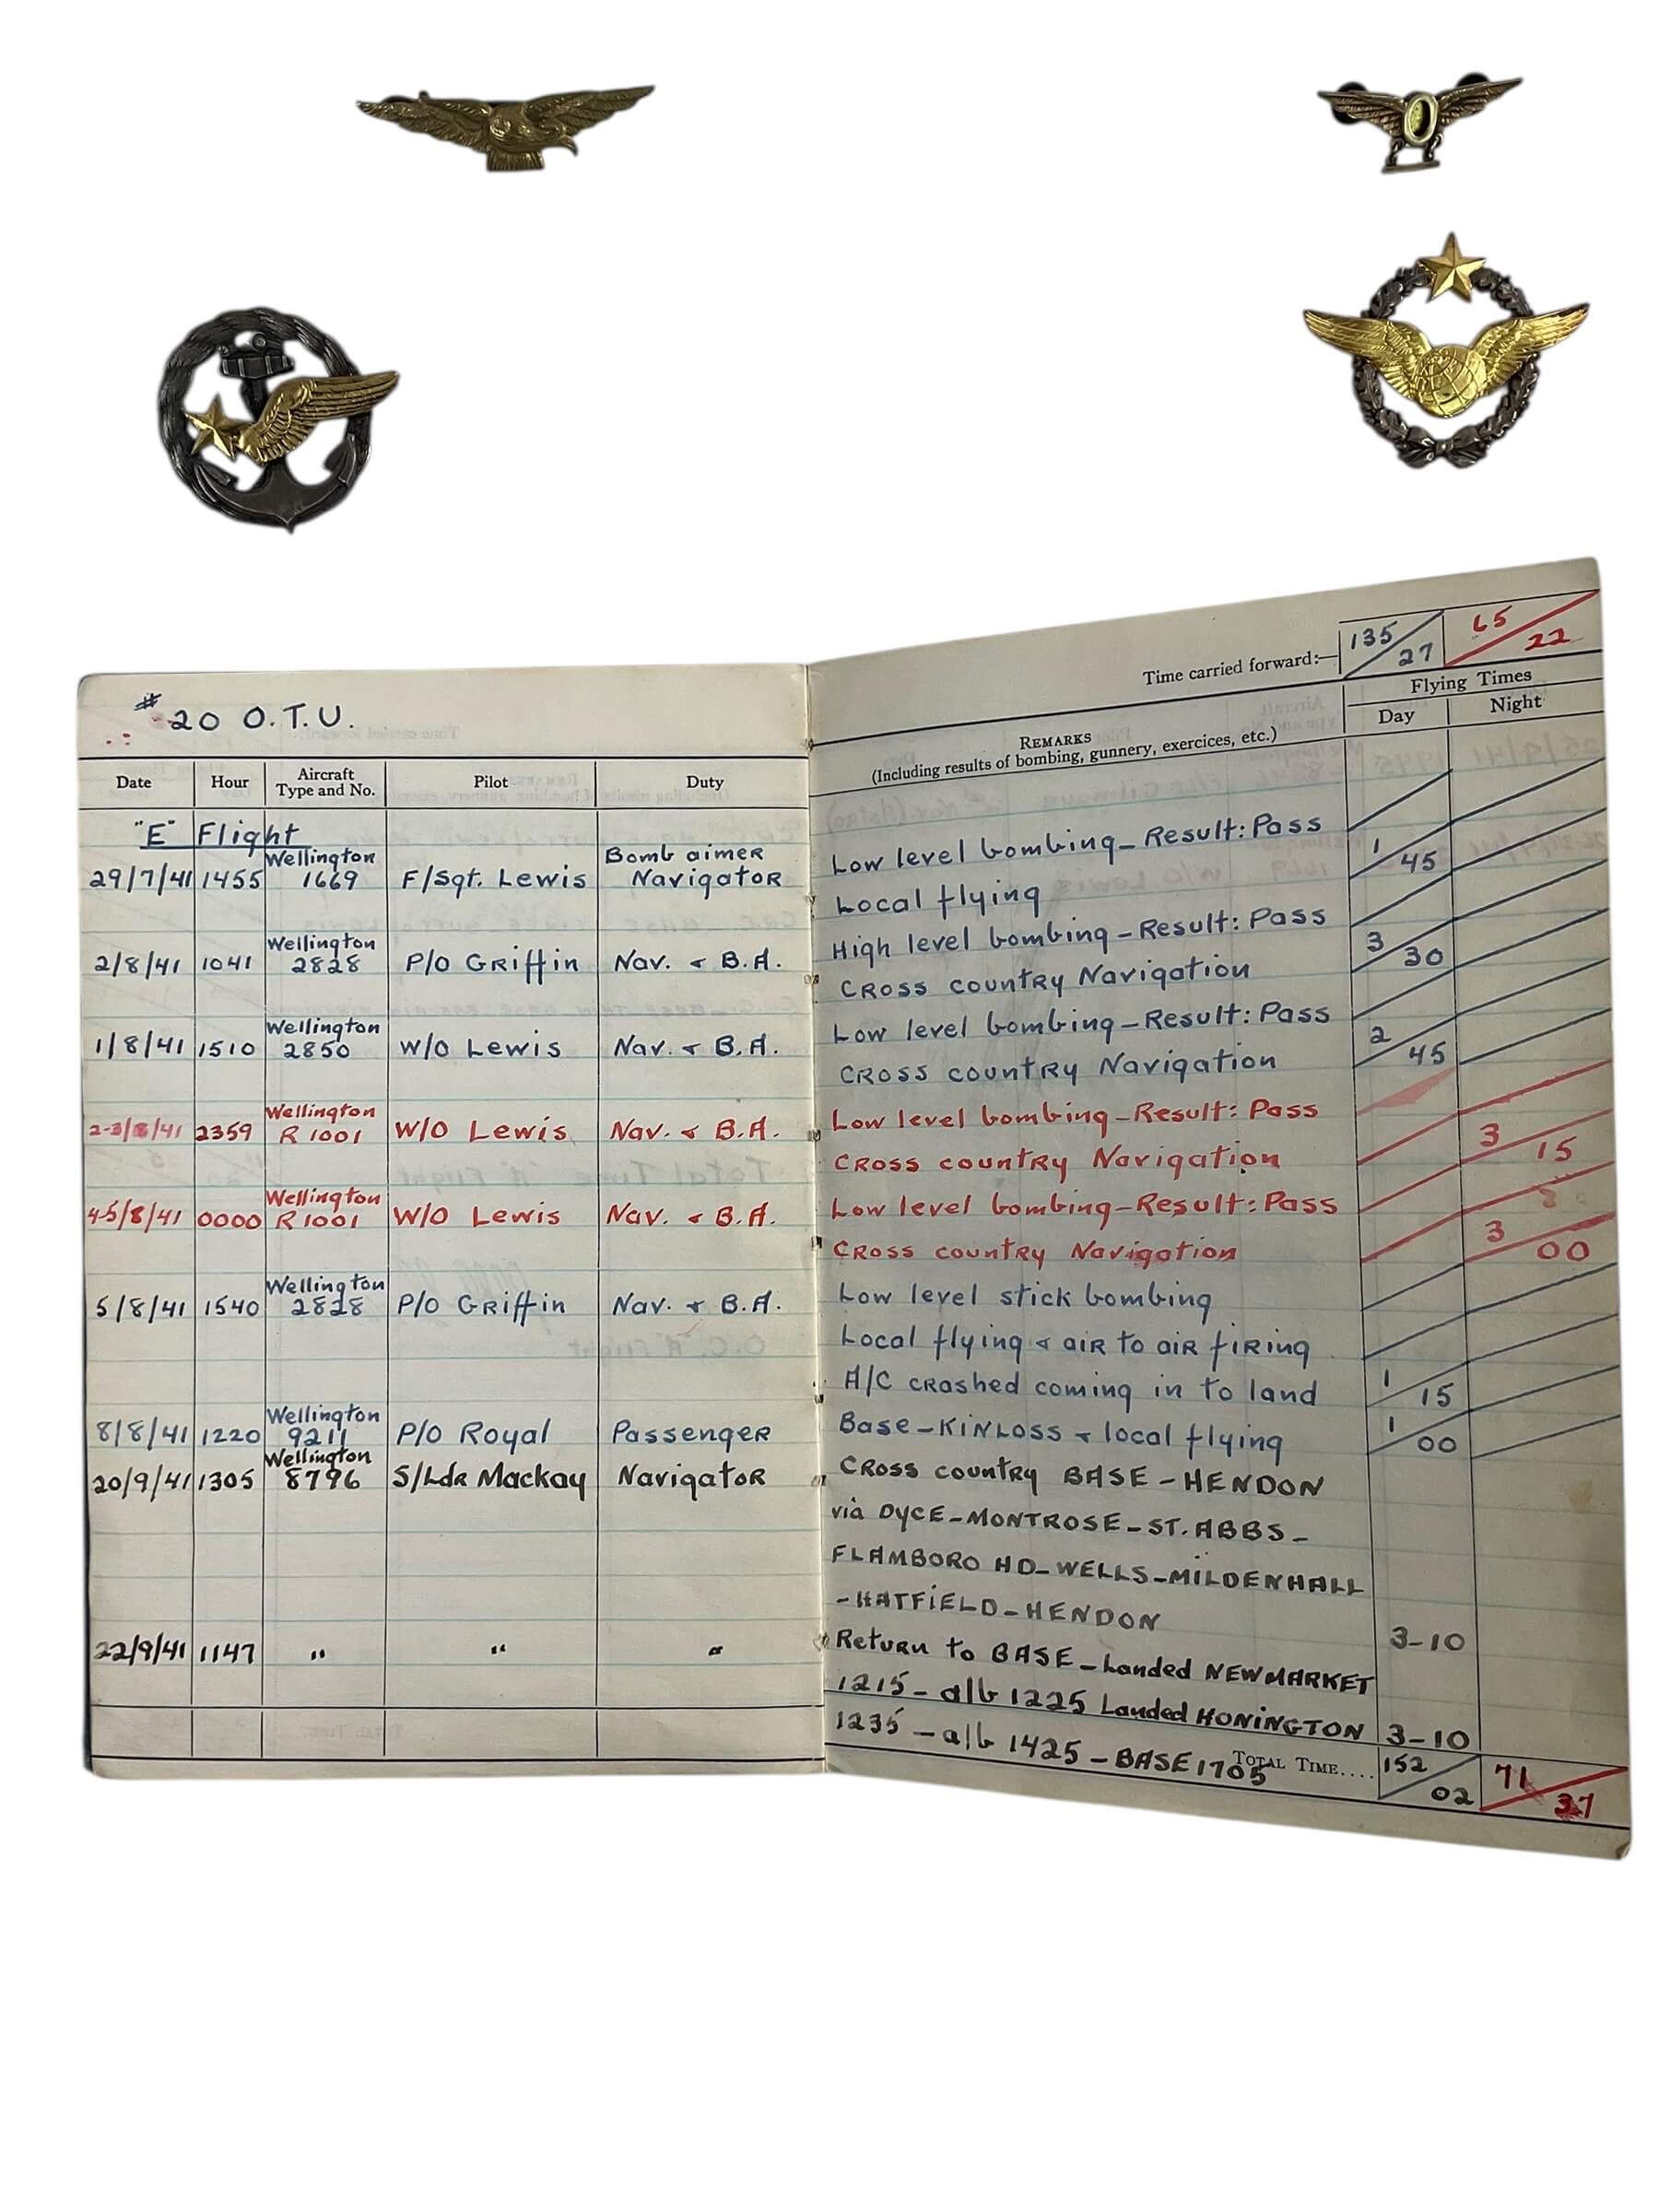 # 20 O.T.U.
Date Hour Aircraft Type and No. Pilot Duty
"E" Flight
29/7/41 1455 Wellington 1669 F/Sgt. Lewis Bomb aimer Navigator
2/8/41 1041 Wellington 2828 P/O Griffin Nav. & B.A.
1/8/41 1510 Wellington 2850 W/O Lewis Nav. & B.A.
2-3/8/41 2359 Wellington R1001 W/O Lewis Nav. & B.A.
4-5/8/41 0000 Wellington R1001 W/O Lewis Nav. & B.A.
5/8/41 1540 Wellington 2828 P/O Griffin Nav. & B.A.
8/8/41 1220 Wellington 9211 P/O Royal Passenger
20/9/41 1305 Wellington 8796 S/Ldr Mackay Navigator
22/9/41 1147 " " "
Time carried forward:— 135/27 65/22
REMARKS
(Including results of bombing, gunnery, exercices, etc.)
Flying Times
Day Night
Low level bombing – Result: Pass
Local flying 1/45
High level bombing – Result: Pass
Cross country Navigation 3/30
Low level bombing – Result: Pass
Cross country Navigation 2/45
Low level bombing – Result: Pass
Cross country Navigation 3/15
Low level bombing – Result: Pass
Cross country Navigation 3/00
Low level stick bombing
Local flying & air to air firing
A/C crashed coming in to land 1/15
Base – KINLOSS & local flying 1/00
Cross country BASE – HENDON
via DYCE – MONTROSE – ST. ABBS –
FLAMBORO HD – WELLS – MILDENHALL
– HATFIELD – HENDON 3-10
Return to BASE – Landed NEWMARKET
1215 – a/b 1225 Landed HONINGTON 3-10
1235 – a/b 1425 – BASE 1705
TOTAL TIME.... 152/02 71/37